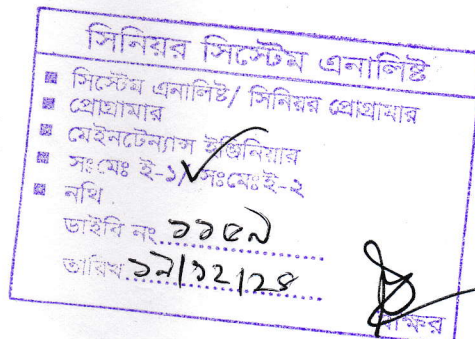 সিনিয়র সিস্টেম এনালিষ্ট
সিস্টেম এনালিষ্ট/ সিনিয়র প্রোগ্রামার
প্রোগ্রামার
মেইনটেন্যান্স ইঞ্জিনিয়ার
সঃমেঃ ই-১/ সঃমেঃই-২
নথি
ডাইরি নং ১১৫৯
তারিখ ১৯/১২/২৪
স্বাক্ষর